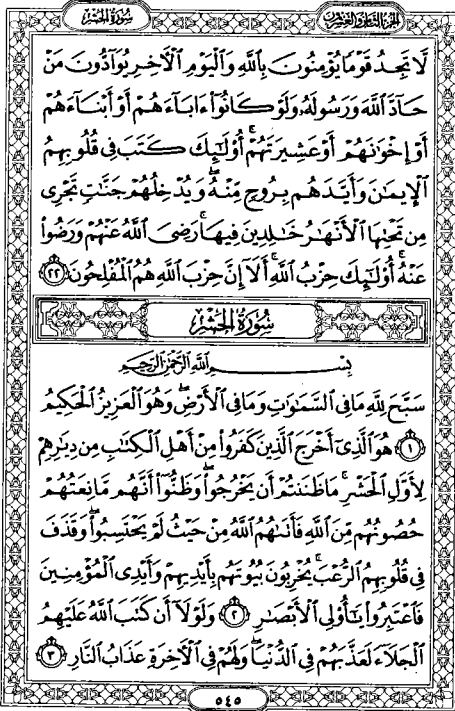 سُورَةُ الحَشْرِ الجُزْءُ الثَّامِنُ وَالعِشْرُونَ
لَّا تَجِدُ قَوْمًا يُؤْمِنُونَ بِٱللَّهِ وَٱلْيَوْمِ ٱلْأٓخِرِ يُوَآدُّونَ مَنْ
حَآدَّ ٱللَّهَ وَرَسُولَهُۥ وَلَوْ كَانُوٓا۟ ءَابَآءَهُمْ أَوْ أَبْنَآءَهُمْ
أَوْ إِخْوَٰنَهُمْ أَوْ عَشِيرَتَهُمْ ۚ أُو۟لَٰٓئِكَ كَتَبَ فِى قُلُوبِهِمُ
ٱلْإِيمَٰنَ وَأَيَّدَهُم بِرُوحٍ مِّنْهُ ۖ وَيُدْخِلُهُمْ جَنَّٰتٍ تَجْرِى
مِن تَحْتِهَا ٱلْأَنْهَٰرُ خَٰلِدِينَ فِيهَا ۚ رَضِىَ ٱللَّهُ عَنْهُمْ وَرَضُوا۟
عَنْهُ ۚ أُو۟لَٰٓئِكَ حِزْبُ ٱللَّهِ ۚ أَلَآ إِنَّ حِزْبَ ٱللَّهِ هُمُ ٱلْمُفْلِحُونَ ٢٢
سُورَةُ الحَشْرِ
بِسْمِ ٱللَّهِ ٱلرَّحْمَٰنِ ٱلرَّحِيمِ
سَبَّحَ لِلَّهِ مَا فِى ٱلسَّمَٰوَٰتِ وَمَا فِى ٱلْأَرْضِ ۖ وَهُوَ ٱلْعَزِيزُ ٱلْحَكِيمُ
١ هُوَ ٱلَّذِىٓ أَخْرَجَ ٱلَّذِينَ كَفَرُوا۟ مِنْ أَهْلِ ٱلْكِتَٰبِ مِن دِيَٰرِهِمْ
لِأَوَّلِ ٱلْحَشْرِ ۚ مَا ظَنَنتُمْ أَن يَخْرُجُوا۟ ۖ وَظَنُّوٓا۟ أَنَّهُم مَّانِعَتُهُمْ
حُصُونُهُم مِّنَ ٱللَّهِ فَأَتَىٰهُمُ ٱللَّهُ مِنْ حَيْثُ لَمْ يَحْتَسِبُوا۟ ۖ وَقَذَفَ
فِى قُلُوبِهِمُ ٱلرُّعْبَ ۚ يُخْرِبُونَ بُيُوتَهُم بِأَيْدِيهِمْ وَأَيْدِى ٱلْمُؤْمِنِينَ
فَٱعْتَبِرُوا۟ يَٰٓأُو۟لِى ٱلْأَبْصَٰرِ ٢ وَلَوْلَآ أَن كَتَبَ ٱللَّهُ عَلَيْهِمُ
ٱلْجَلَآءَ لَعَذَّبَهُمْ فِى ٱلدُّنْيَا ۖ وَلَهُمْ فِى ٱلْأٓخِرَةِ عَذَابُ ٱلنَّارِ ٣
٥٤٥